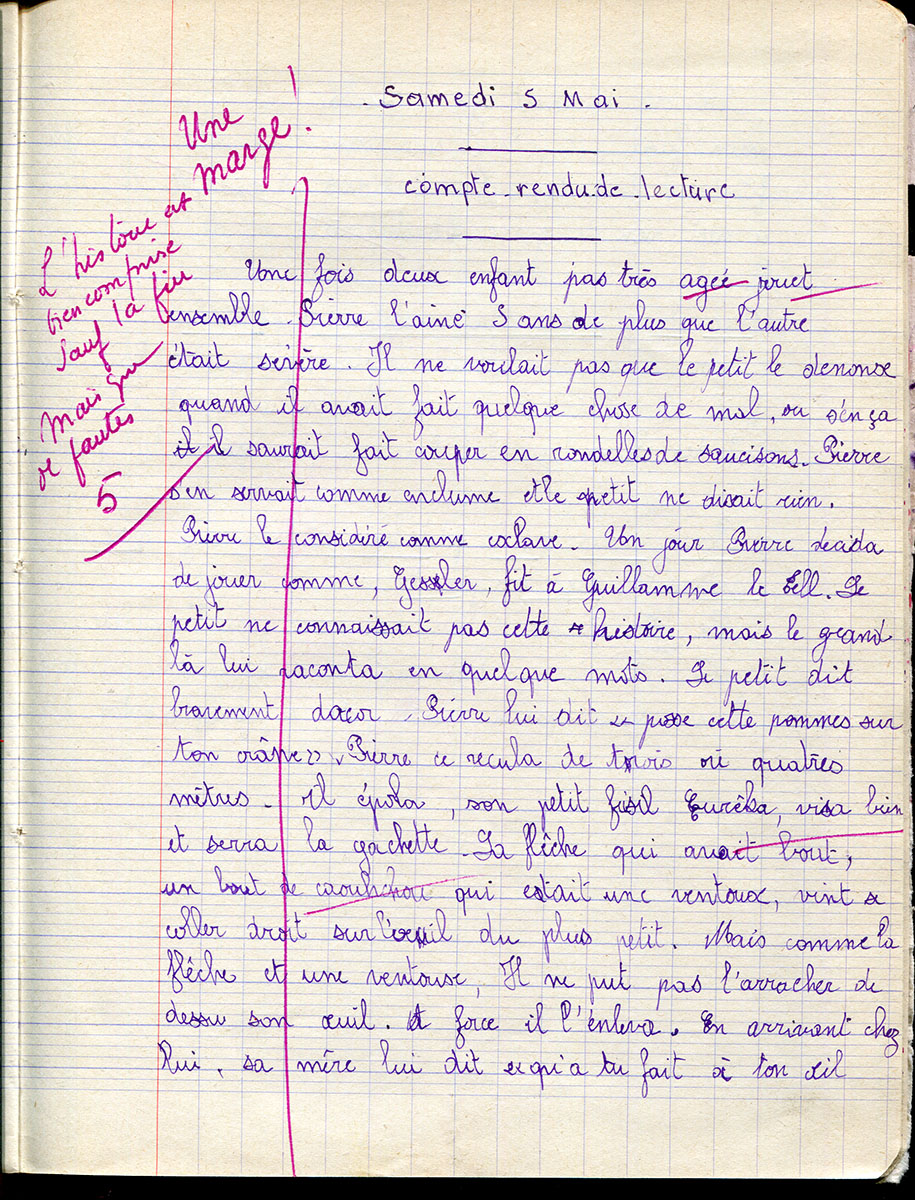 Samedi 5 Mai.
compte-rendu de lecture
Une
marge !
L'histoire est
bien comprise
sauf la fin
Mais que
de fautes
5
Une fois deux enfant pas très ageé jouet
ensemble. Pierre l'ainé 5 ans de plus que l'autre
était sévère. Il ne voulait pas que le petit le denonse
quand il avait fait quelque chose de mal, ou s'en ça
il saurait fait couper en rondelles de saucisons. Pierre
s'en servait comme enclume et le petit ne disait rien.
Pierre le considéré comme esclave. Un jour Pierre décida
de jouer comme, Gessler, fit à Guillamme le Tell. Le
petit ne connaissait pas cette histoire, mais le grand
là lui raconta en quelque mots. Le petit dit
bravement dacor. Pierre lui dit « pose cette pommes sur
ton crâne ». Pierre ce recula de trois où quatres
mètres. Il épola, son petit fusil Eurêka, visa bien
et serra la gachette. La flêche qui avait bout,
un bout de caouhchou qui était une ventoux, vint
coller droit sur l'œuil du plus petit. Mais comme la
flêche et une ventouse, Il ne put pas l'arracher de
dessu son œuil. A force il l'enleva. En arrivant chez
lui, sa mère lui dit « qu'a tu fait à ton œil